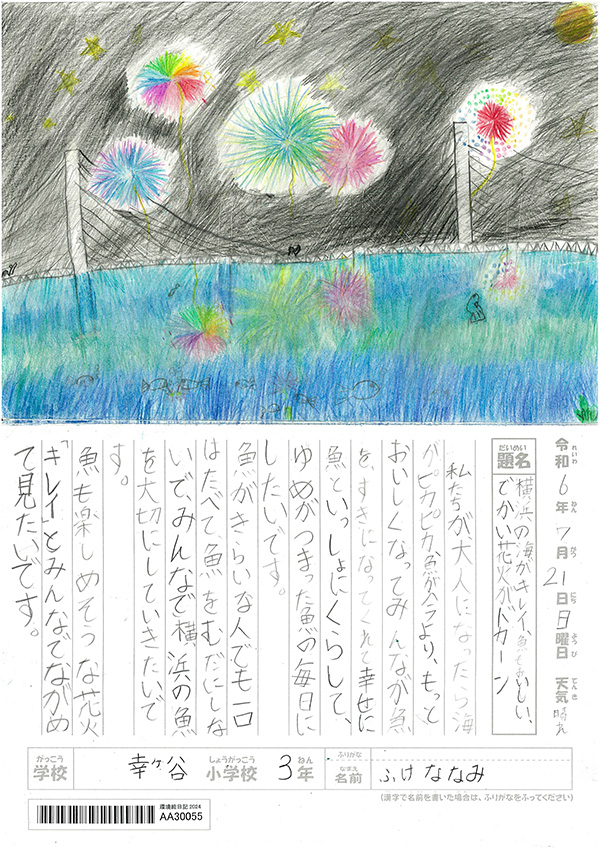 令和6年7月21日日曜日 天気晴れ
れいわ ねん がつ にち ようび てんき
だいめい
題名
横浜の海がキレイ、魚もおいしい、
でかい花火がドカーン
私たちが大人になったら海
がピカピカ魚が今より、もっと
おいしくなってみんなが魚
を、すきになってくれて幸せに
魚といっしょにくらして、
ゆめがつまった魚の毎日に
したいです。
魚がきらいな人でも一口
はたべて魚をむだにしな
いで、みんなで横浜の魚
を大切にしていきたいで
す。
魚も楽しめそうな花火
「キレイ」とみんなでながめ
て見たいです。
がっこう
学校
幸ヶ谷
しょうがっこう
小学校
3年
ねん
ふりがな
なまえ
名前
ふけななみ
(漢字で名前を書いた場合は、ふりがなをふってください)
環境絵日記2024
AA30055